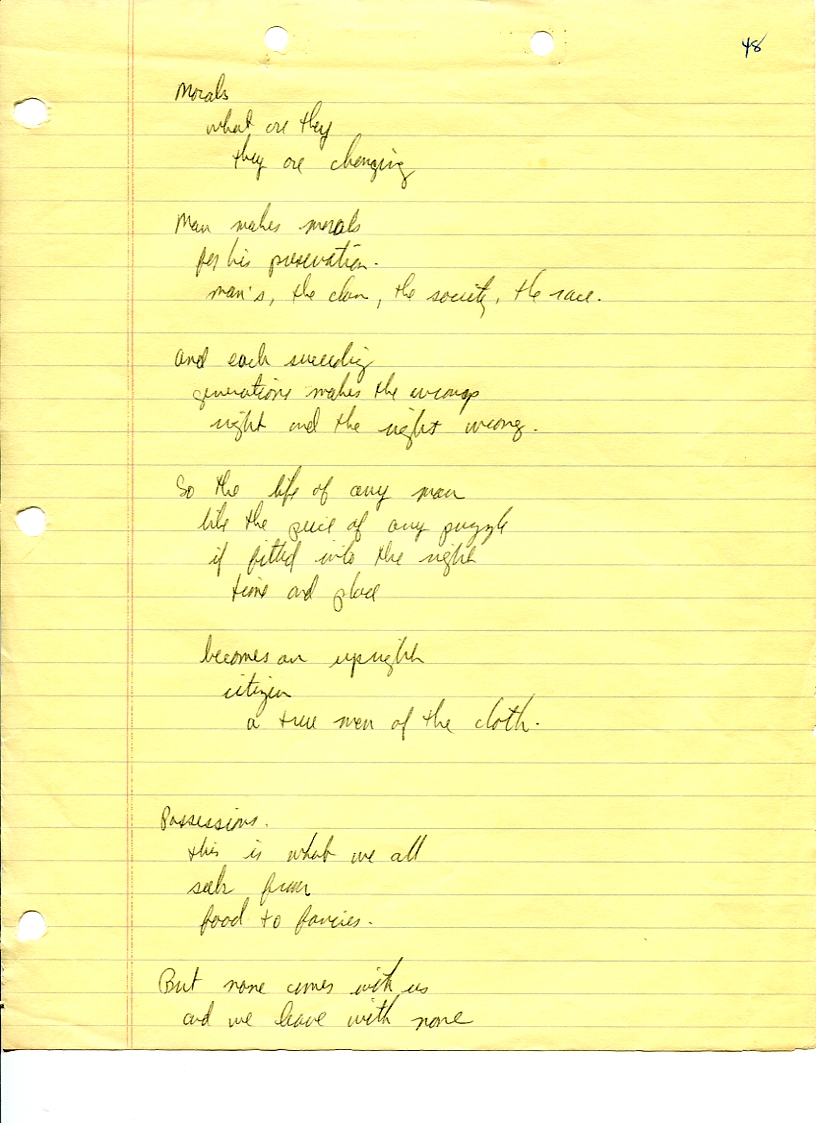 48
Morals
what are they
they are changing
Man makes morals
for his preservation.
man's, the clan, the society, the race.
And each succeeding
generations makes the wrongs
right and the right wrong.
So the life of any man
like the piece of any puzzle
if fitted into the right
time and place
becomes an upright
citizen
a true man of the cloth.
Possessions.
this is what we all
seek from
food to fancies.
But none comes with us
and we leave with none